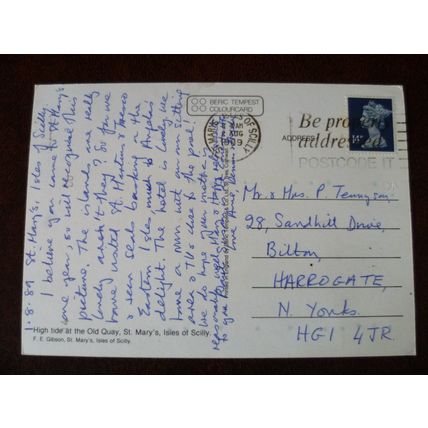 1.8.89 St. Mary's, Isles of Scilly.
I believe you came to St. Mary's
one year, so will recognise this
picture. The islands are really
lovely aren't they? So far we
have visited St. Martin's & Tresco
& seen seals basking on the
Eastern Isles, much to Angela's
delight. The hotel is lovely, we
have a room with our own sitting
area & it is close to the pool!
We do hope your mother is
reasonably
to you
High tide at the Old Quay, St. Mary's, Isles of Scilly.
F. E. Gibson, St. Mary's, Isles of Scilly.
BERIC TEMPEST
COLOURCARD
OF SCILLY
AUG
Be properly
ADDRESS
addressed
POSTCODE IT
14P
Mr. & Mrs. P. Tennyson
28, Sandhill Drive,
Bilton,
HARROGATE,
N. Yorks.
HG1 4JR.